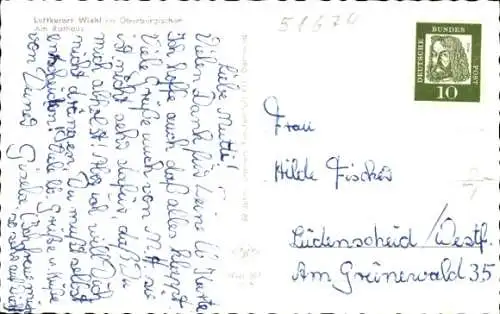 Luftkurort Wiehl im Oberbergischen
Am Rathaus
51674
DEUTSCHE BUNDESPOST
10
Liebe Mutti!
Vielen Dank für Deine lb Karte
Ich hoffe auch daß alles klappt
Viele Grüße auch von M. sie
ist auch sehr dafür daß Du
mich abholst! Aber ich will Dich
nicht drängen Du mußt selbst
entscheiden! Viele lb Grüße u. Küße
von Deiner Gisela
Frau
Hilde Fischer
Lüdenscheid/Westf.
Am Grünewald 35